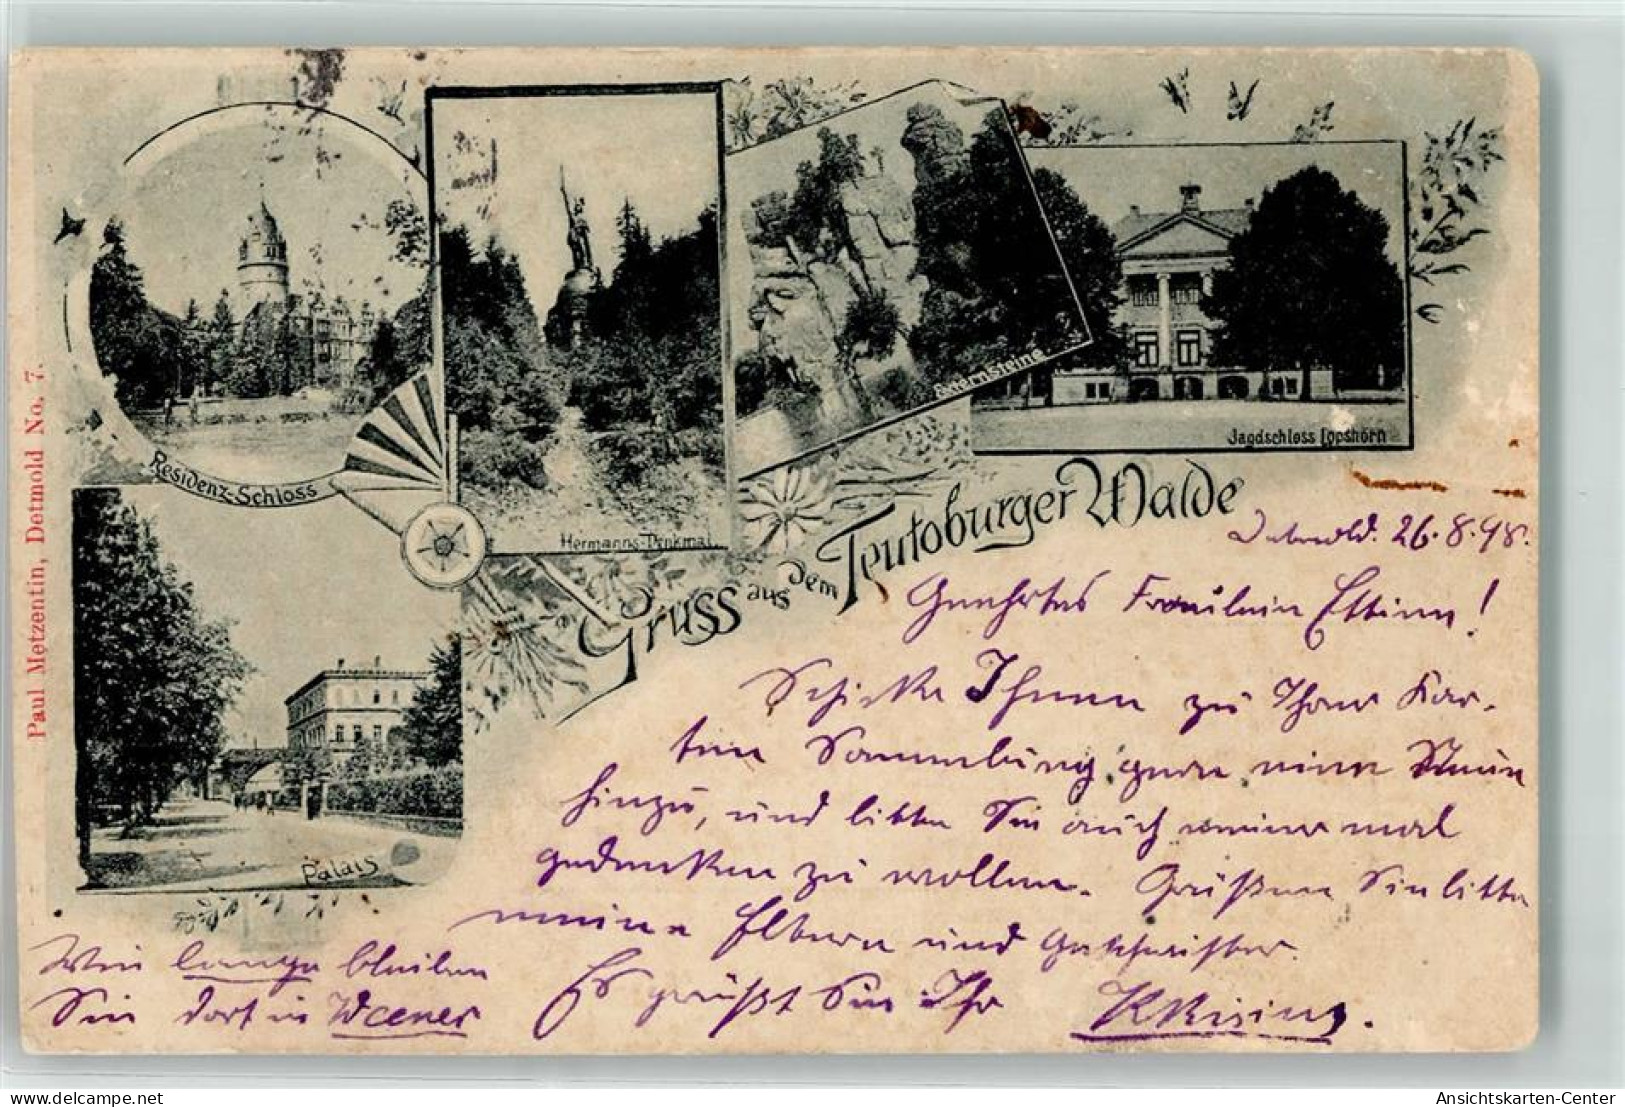 Paul Metzentin, Detmold No. 7.
Residenz-Schloss
Hermanns-Denkmal.
Externsteine
Jagdschloss Lopshorn
Palais
Gruss aus dem Teutoburger Walde
Detmold. 26.8.98.
Geehrtes Fräulein
Schicke Ihnen zu Ihrer Kar-
ten Sammlung gern eine
hinzu, und bitte Sie auch meiner mal
gedenken zu wollen. Grüßen Sie bitte
meine Eltern und Geschwister.
Es grüßt Sie Ihr
Wie lange bleiben
Sie dort in Weener
Ansichtskarten-Center
www.delcampe.net